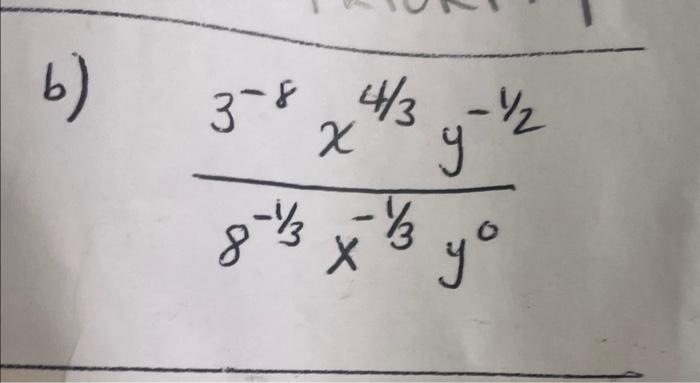 b)
3^{-8} x^{4/3} y^{-1/2}
8^{-1/3} x^{-1/3} y^{0}